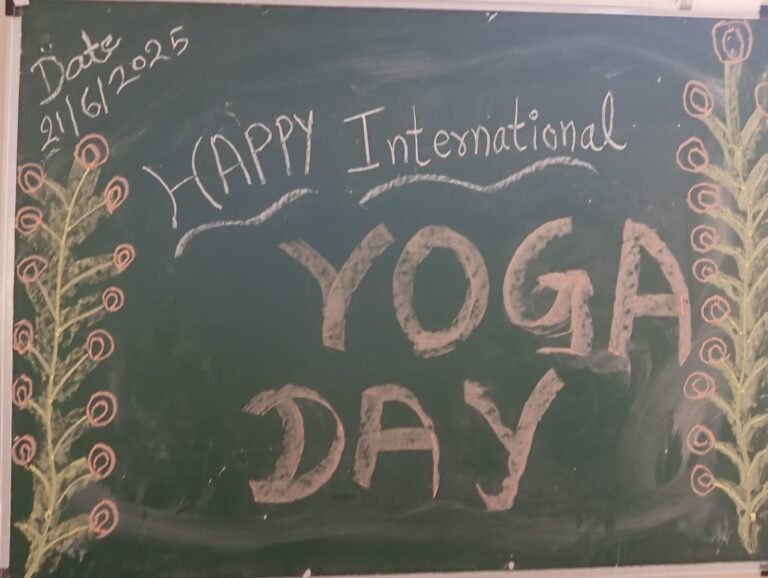 Date
21/6/2025
HAPPY International
YOGA
DAY